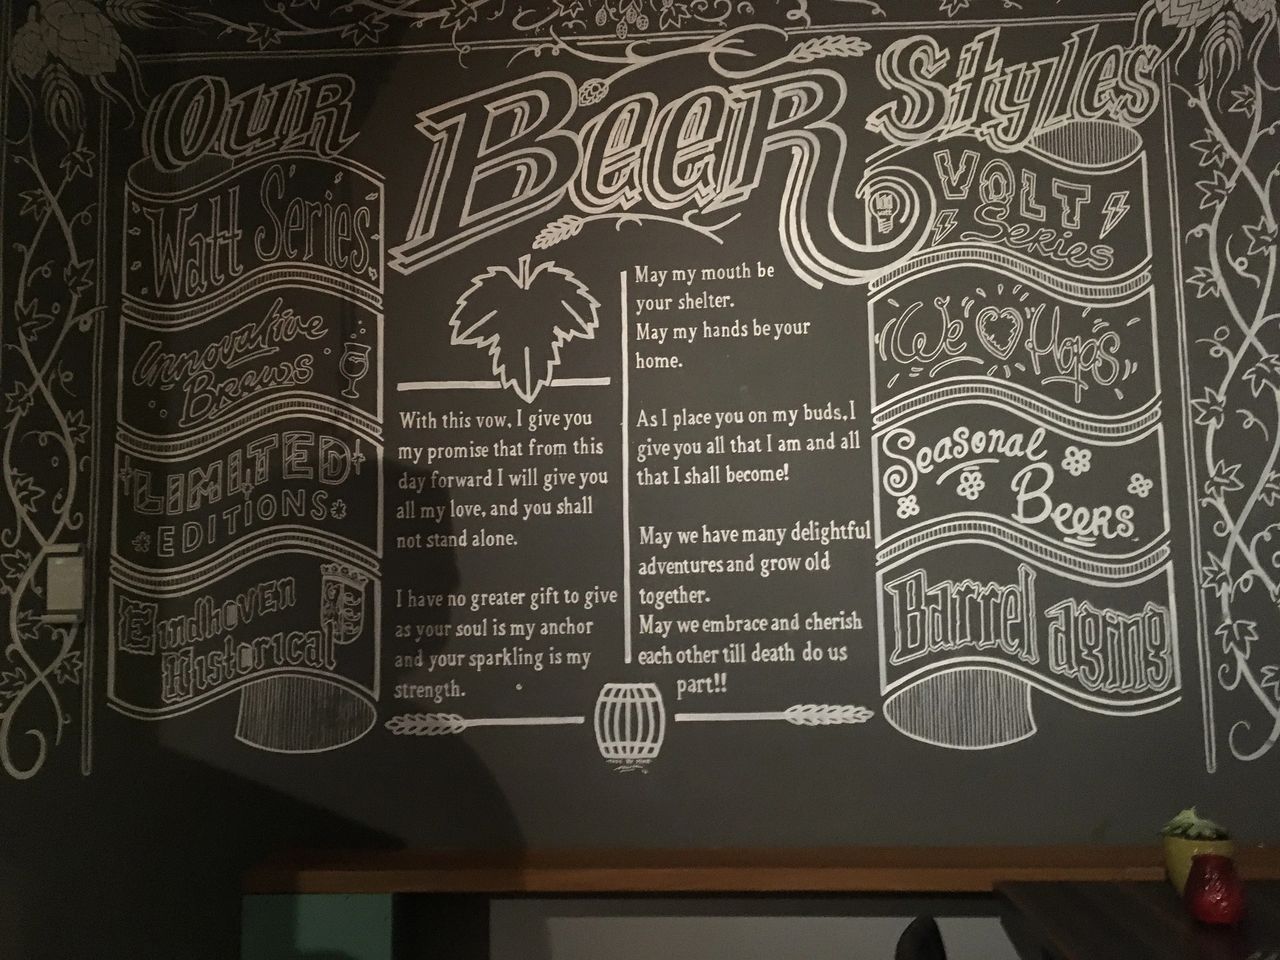 Our Beer Styles
Watt Series
Innovative
Brews
LIMITED
EDITIONS
Eindhoven
Historical
With this vow, I give you
my promise that from this
day forward I will give you
all my love, and you shall
not stand alone.
I have no greater gift to give
as your soul is my anchor
and your sparkling is my
strength.
May my mouth be
your shelter.
May my hands be your
home.
As I place you on my buds, I
give you all that I am and all
that I shall become!
May we have many delightful
adventures and grow old
together.
May we embrace and cherish
each other till death do us
part!!
VOLT
Series
We Hops
Seasonal
Beers
Barrel aging